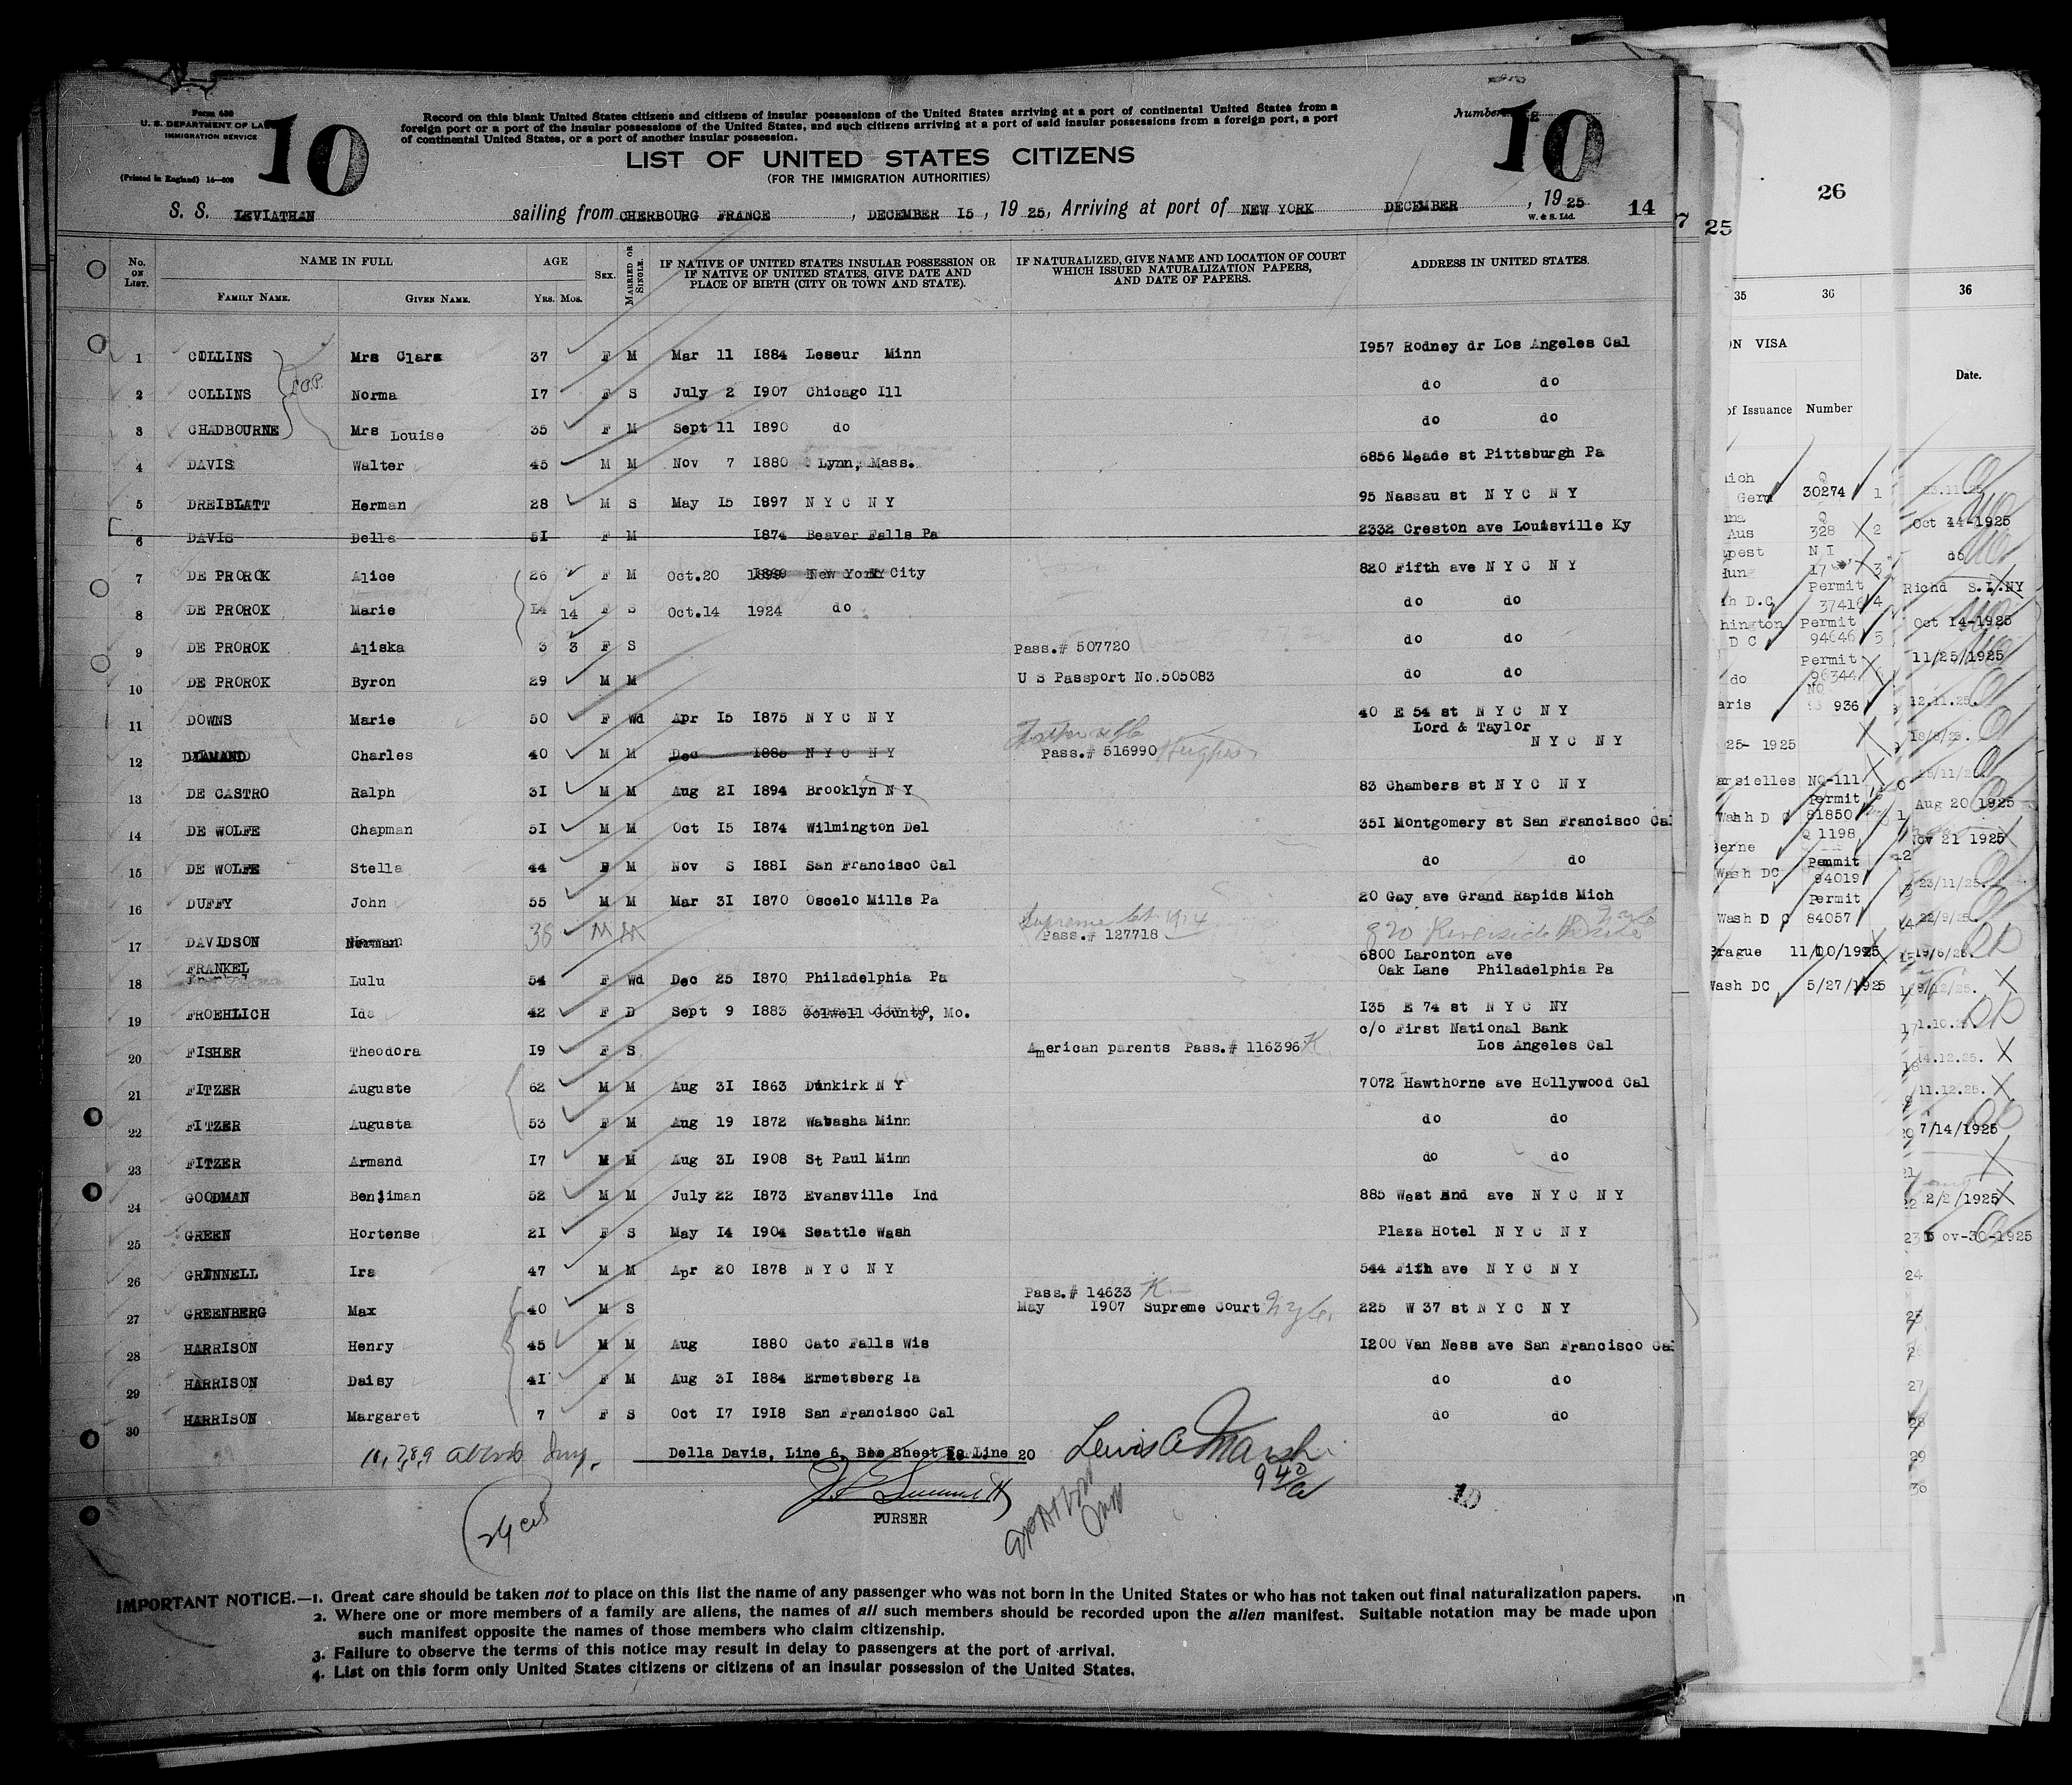 Form 630
U. S. DEPARTMENT OF LA
IMMIGRATION SERVICE
(Printed in England) 14—600
10
Record on this blank United States citizens and citizens of insular possessions of the United States arriving at a port of continental United States from a
foreign port or a port of the insular possessions of the United States, and such citizens arriving at a port of said insular possessions from a foreign port, a port
of continental United States, or a port of another insular possession.
Number 2
10
LIST OF UNITED STATES CITIZENS
(FOR THE IMMIGRATION AUTHORITIES)
S. S. LEVIATHAN sailing from CHERBOURG FRANCE, DECEMBER I5, 1925, Arriving at port of NEW YORK DECEMBER, 1925
W. & S. Ltd. 14
No. ON LIST. NAME IN FULL FAMILY NAME. GIVEN NAME. AGE YRS. MOS. SEX. MARRIED OR SINGLE.
IF NATIVE OF UNITED STATES INSULAR POSSESSION OR IF NATIVE OF UNITED STATES, GIVE DATE AND PLACE OF BIRTH (CITY OR TOWN AND STATE).
IF NATURALIZED, GIVE NAME AND LOCATION OF COURT WHICH ISSUED NATURALIZATION PAPERS, AND DATE OF PAPERS.
ADDRESS IN UNITED STATES.
1 COLLINS Mrs Clara 37 F M Mar 11 I884 Leseur Minn I957 Rodney dr Los Angeles Cal
2 COLLINS Norma I7 F S July 2 I907 Chicago Ill do do
3 CHADBOURNE Mrs Louise 35 F M Sept 11 I890 do do do
4 DAVIS Walter 45 M M Nov 7 I880 Lynn, Mass. 6856 Meade st Pittsburgh Pa
5 DREIBLATT Herman 28 M S May I5 I897 N Y C N Y 95 Nassau st N Y C N Y
6 DAVIS Della 5I F M I874 Beaver Falls Pa 2332 Creston ave Louisville Ky
7 DE PROROK Alice 26 F M Oct.20 1899 New York City 820 Fifth ave N Y C N Y
8 DE PROROK Marie 14 F S Oct.14 1924 do do do
9 DE PROROK Aliska 3 3 F S Pass.# 507720 do do
10 DE PROROK Byron 29 M M U S Passport No.505083 do do
11 DOWNS Marie 50 F Wd Apr I5 I875 N Y C N Y 40 E 54 st N Y C N Y
12 DIAMAND Charles 40 M M Dec I885 N Y C N Y Pass.# 516990 Hughes Lord & Taylor N Y C N Y
13 DE CASTRO Ralph 3I M M Aug 2I I894 Brooklyn N Y 83 Chambers st N Y C N Y
14 DE WOLFE Chapman 5I M M Oct I5 I874 Wilmington Del 35I Montgomery st San Francisco Cal
15 DE WOLFE Stella 44 F M Nov S I88I San Francisco Cal do do
16 DUFFY John 55 M M Mar 3I I870 Oscelo Mills Pa 20 Gay ave Grand Rapids Mich
17 DAVIDSON Norman 38 M M Supreme Ct 1914 Pass.# 127718 820 Riverside Drive
18 FRANKEL Lulu 54 F Wd Dec 25 I870 Philadelphia Pa 6800 Laronton ave Oak Lane Philadelphia Pa
19 FROEHLICH Ida 42 F D Sept 9 I883 Colwell County, Mo. I35 E 74 st N Y C NY
20 FISHER Theodora I9 F S American parents Pass.# 116396 K c/o First National Bank Los Angeles Cal
21 FITZER Auguste 62 M M Aug 3I I863 Dunkirk N Y 7072 Hawthorne ave Hollywood Cal
22 FITZER Augusta 53 F M Aug 19 I872 Wabasha Minn do do
23 FITZER Armand I7 M M Aug 3L I908 St Paul Minn do do
24 GOODMAN Benjiman 52 M M July 22 I873 Evansville Ind 885 West End ave N Y C N Y
25 GREEN Hortense 2I F S May I4 I904 Seattle Wash Plaza Hotel N Y C N Y
26 GRINNELL Ira 47 M M Apr 20 I878 N Y C N Y 544 Fifh ave N Y C N Y
27 GREENBERG Max 40 M S Pass.# 14633 K May I907 Supreme Court 225 W 37 st N Y C N Y
28 HARRISON Henry 45 M M Aug I880 Cato Falls Wis I200 Van Ness ave San Francisco Cal
29 HARRISON Daisy 4I F M Aug 3I I884 Ermetsberg Ia do do
30 HARRISON Margaret 7 F S Oct I7 I9I8 San Francisco Cal do do
Della Davis, Line 6, See Sheet Line 20
Lewis A Marsh
9 40 a
PURSER
10
IMPORTANT NOTICE.—1. Great care should be taken not to place on this list the name of any passenger who was not born in the United States or who has not taken out final naturalization papers.
2. Where one or more members of a family are aliens, the names of all such members should be recorded upon the alien manifest. Suitable notation may be made upon
such manifest opposite the names of those members who claim citizenship.
3. Failure to observe the terms of this notice may result in delay to passengers at the port of arrival.
4. List on this form only United States citizens or citizens of an insular possession of the United States.
7 25 26
35 36 36
ON VISA
Date.
of Issuance Number
Germ 30274 1
Aus 328 2 Oct 14-1925
pest N I do
Hung 17 3
Permit Richd S.I.NY
h D.C 37416 4
hington Permit Oct 14-1925
D C 94646
Permit 11/25/1925
do 96344
NO
aris 936 12.11.25.
25- 1925
arsielles NO-111 25/11/25.
Permit Aug 20 1925
Wahh D C 81850
Q 1198 Nov 21 1925
Berne
Permit
Wash DC 94019 23/11/25.
Permit
Wash D C 84057 22/9/25.
Prague 11/10/1925 19/6/25.
Wash DC 5/27/1925
14.12.25.
11.12.25.
7/14/1925
22 2/2/1925
23 ov-30-1925
24
25
26
27
28
29
30